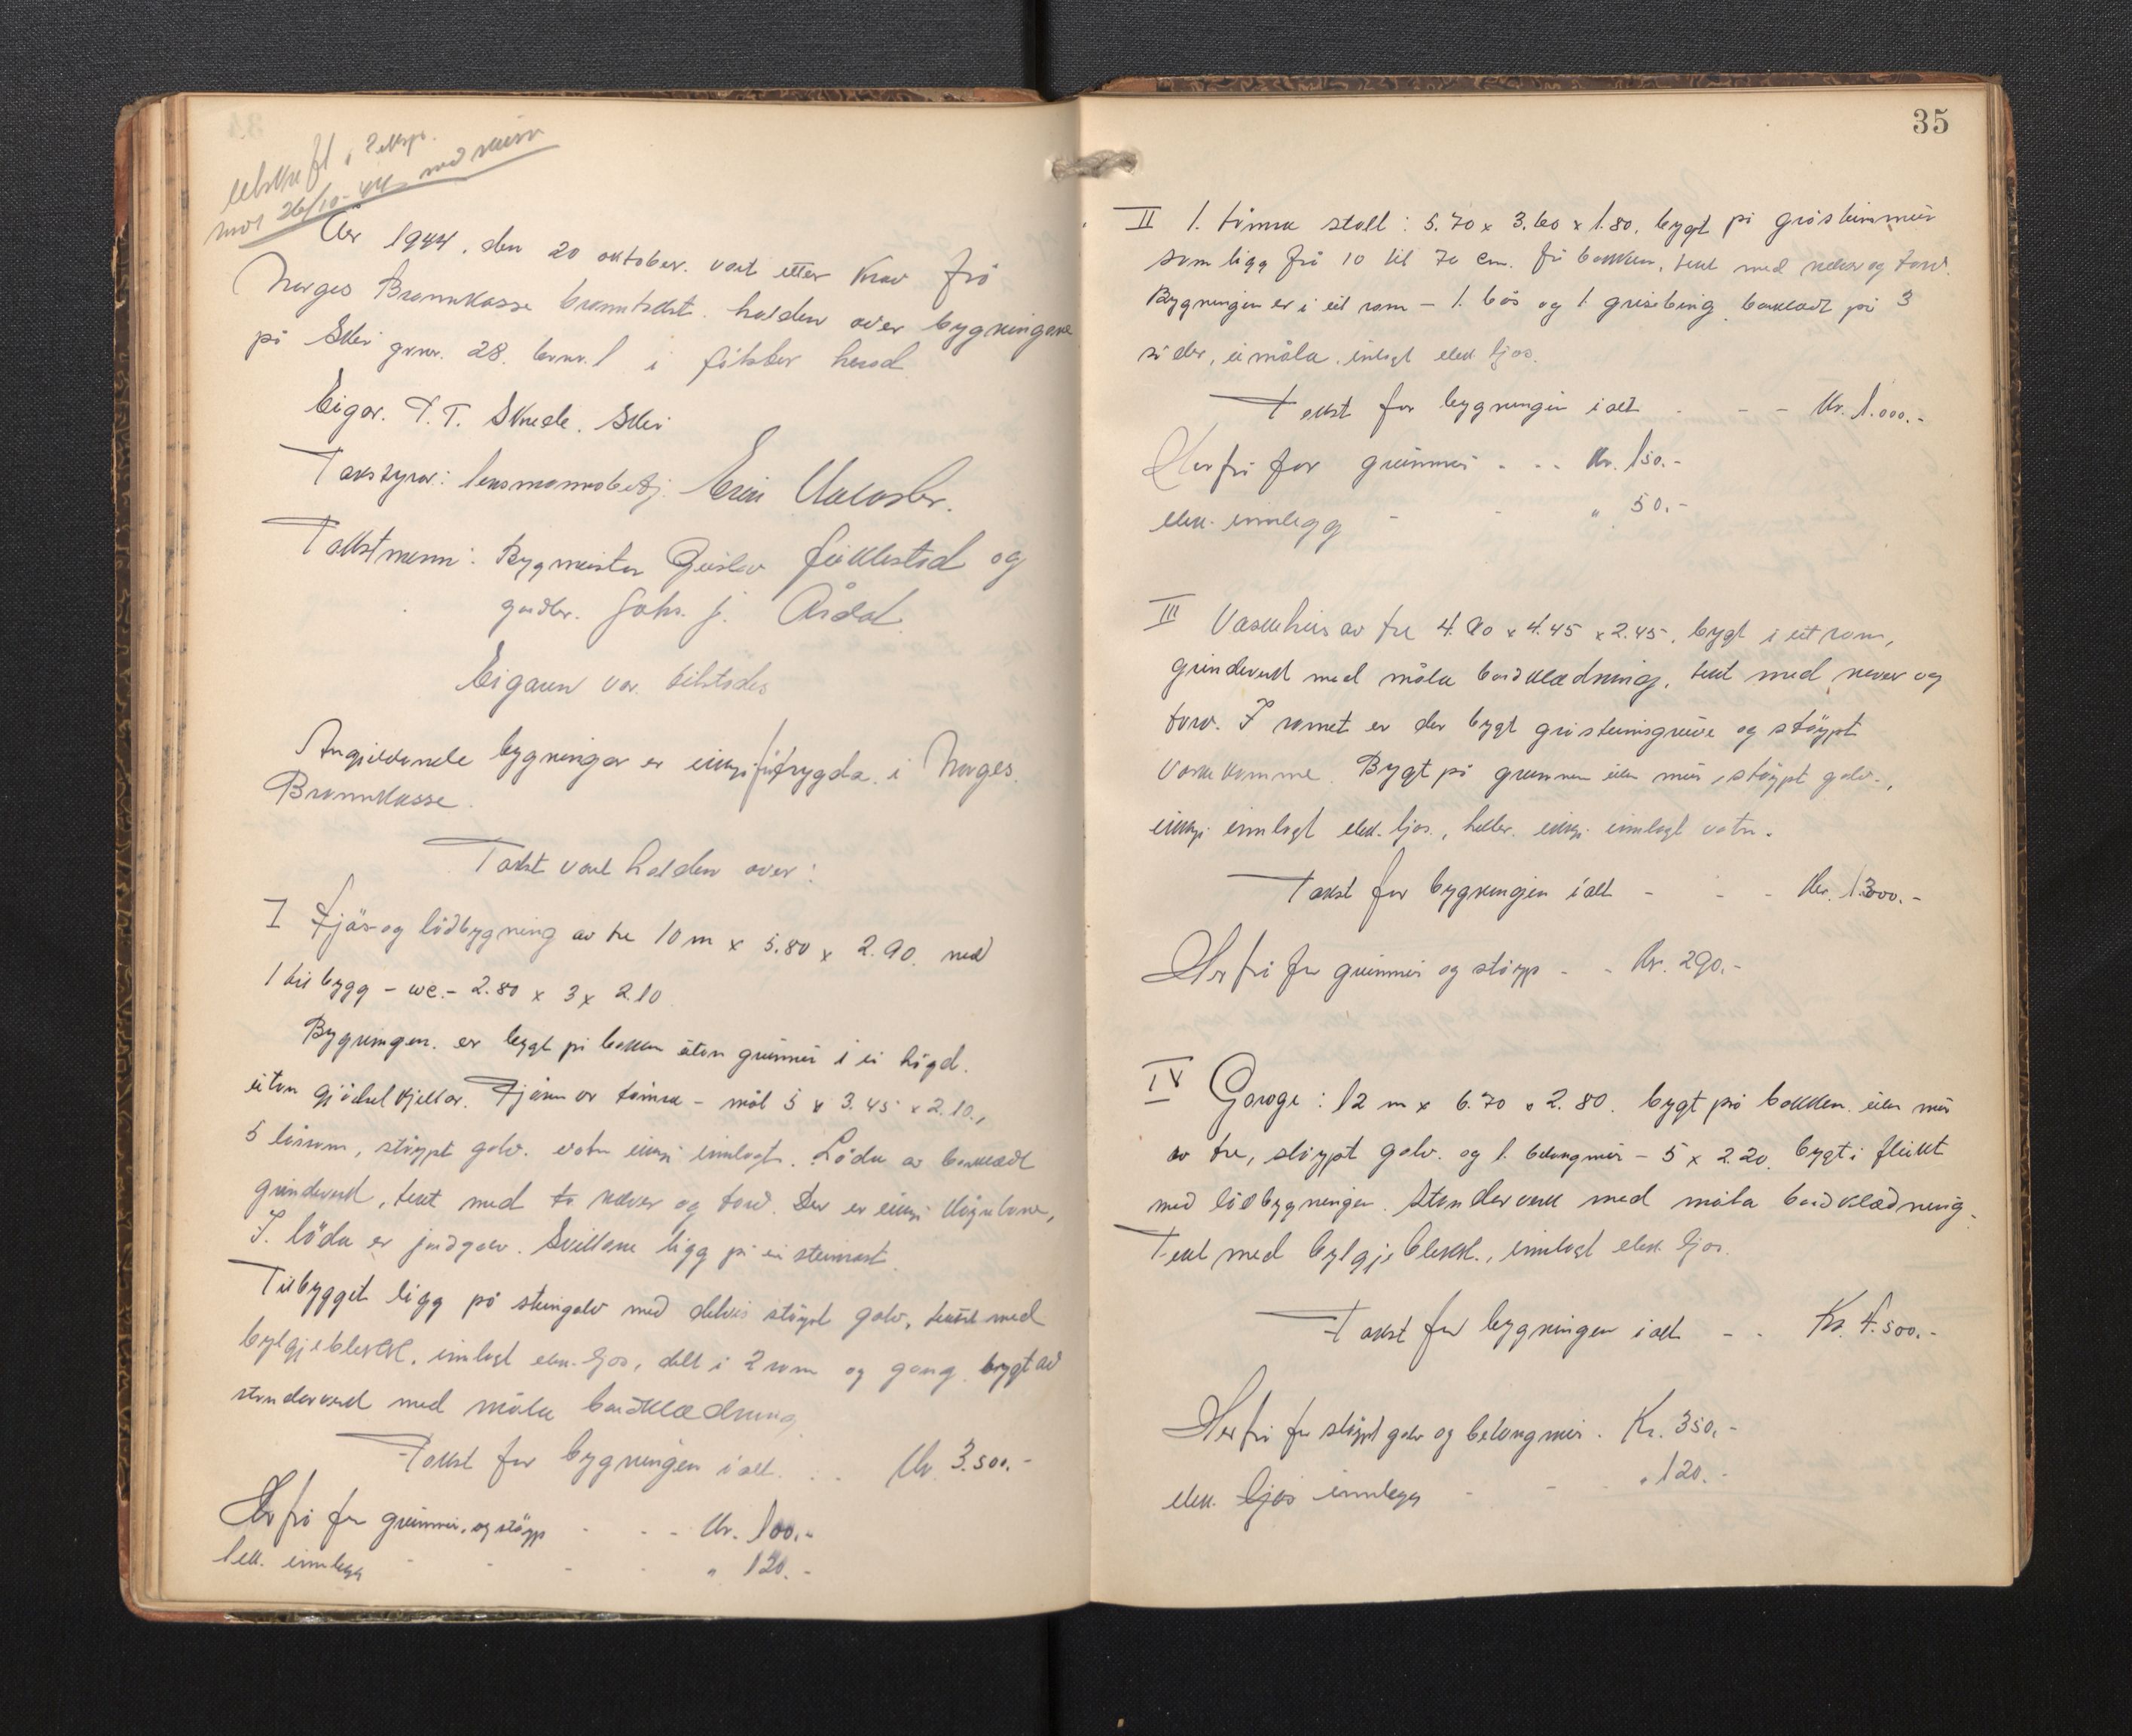 utskrift i 2 eksp.
26/10-44
År 1944, den 20 oktober. vart etter krav frå
Norges Brannkasse branntakst. halden over bygningane
på Skei grnr. 28. brnr. 1 i Jölster herad
Eigar. T. T. Skrede. Skei
Takstyrar: lensmannsbetj.
Takstmenn: Bygmeister og
gardbr. Johs. J. Årdal
Eigaren var tilstades
Angjeldande bygningar er ikkje fyrr trygda i Norges
Brannkasse.
Takst vart halden over:
I Fjös og lödbygning av tre 10 m x 5.80 x 2.90. med
1 tilbygg - wc. - 2.80 x 3 x 2.10
Bygningen. er bygt på bakken utan grunnmur i ei högd.
utan gjödselkjellar. Fjösen av tömra - mål 5 x 3.45 x 2.10.,
5 båsrom, stöypt golv. vatn ikkje innlagt. Löda av bordkledt
grindverk, tekt med never og torv. Der er ikkje
I. löda er jordgolv. Svillane ligg på ei
Tilbygget ligg på steingolv med delvis stöypt golv, tekt med
bylgjeblekk. innlagt elek. ljos, delt i 2 rom og gang. bygt av
standerverk med måla bordklædning.
Takst for bygningen i alt. . . Kr. 3.500.-
Herfrå for grunnmur, og stöyp - - - Kr. 100.-
elek. innlegg - - - " 120.-
35
II 1. tömra stall: 5.70 x 3.60 x 1.80. bygt på gråsteinmur
som ligg frå 10 til 70 cm. frå bakken, tekt med never og torv.
Bygningen er i eit rom - 1. bås og 1. grisebing bordkledt på 3
sider, umåla. innlagt elek. ljos.
Takst for bygningen i alt - - - Kr. 1.000.-
Herfrå for grunnmur - - - Kr. 150.-
elek. innlegg - - " 50.-
III Vaskehus av tre 4.90 x 4.45 x 2.45, bygt i eit rom,
grindverk med måla bordklædning, tekt med never og
torv. I romet er der bygt gråsteinsgruve og stöypt
Bygt på grunnen uten mur, stöypt golv.,
ikkje innlagt elek. ljos., heller. ikkje innlagt vatn.
Takst for bygningen i alt - - - Kr. 1300.-
Herfrå for grunnmur og stöyp - - Kr. 290.-
IV Garage: 12 m x 6.70 x 2.80. bygt på bakken. uten mur
av tre, stöypt golv. og 1. betongmur - 5 x 2.20. bygt i flukt
med lödbygningen. Standerverk med måla bordklædning.
Tekt med bylgjeblekk., innlagt elek. ljos.
Takst for bygningen i alt - - Kr. 4.500.-
Herfrå for stöypt golv og betongmur. Kr. 350.-
elek. ljos innlegg - - " 120.-